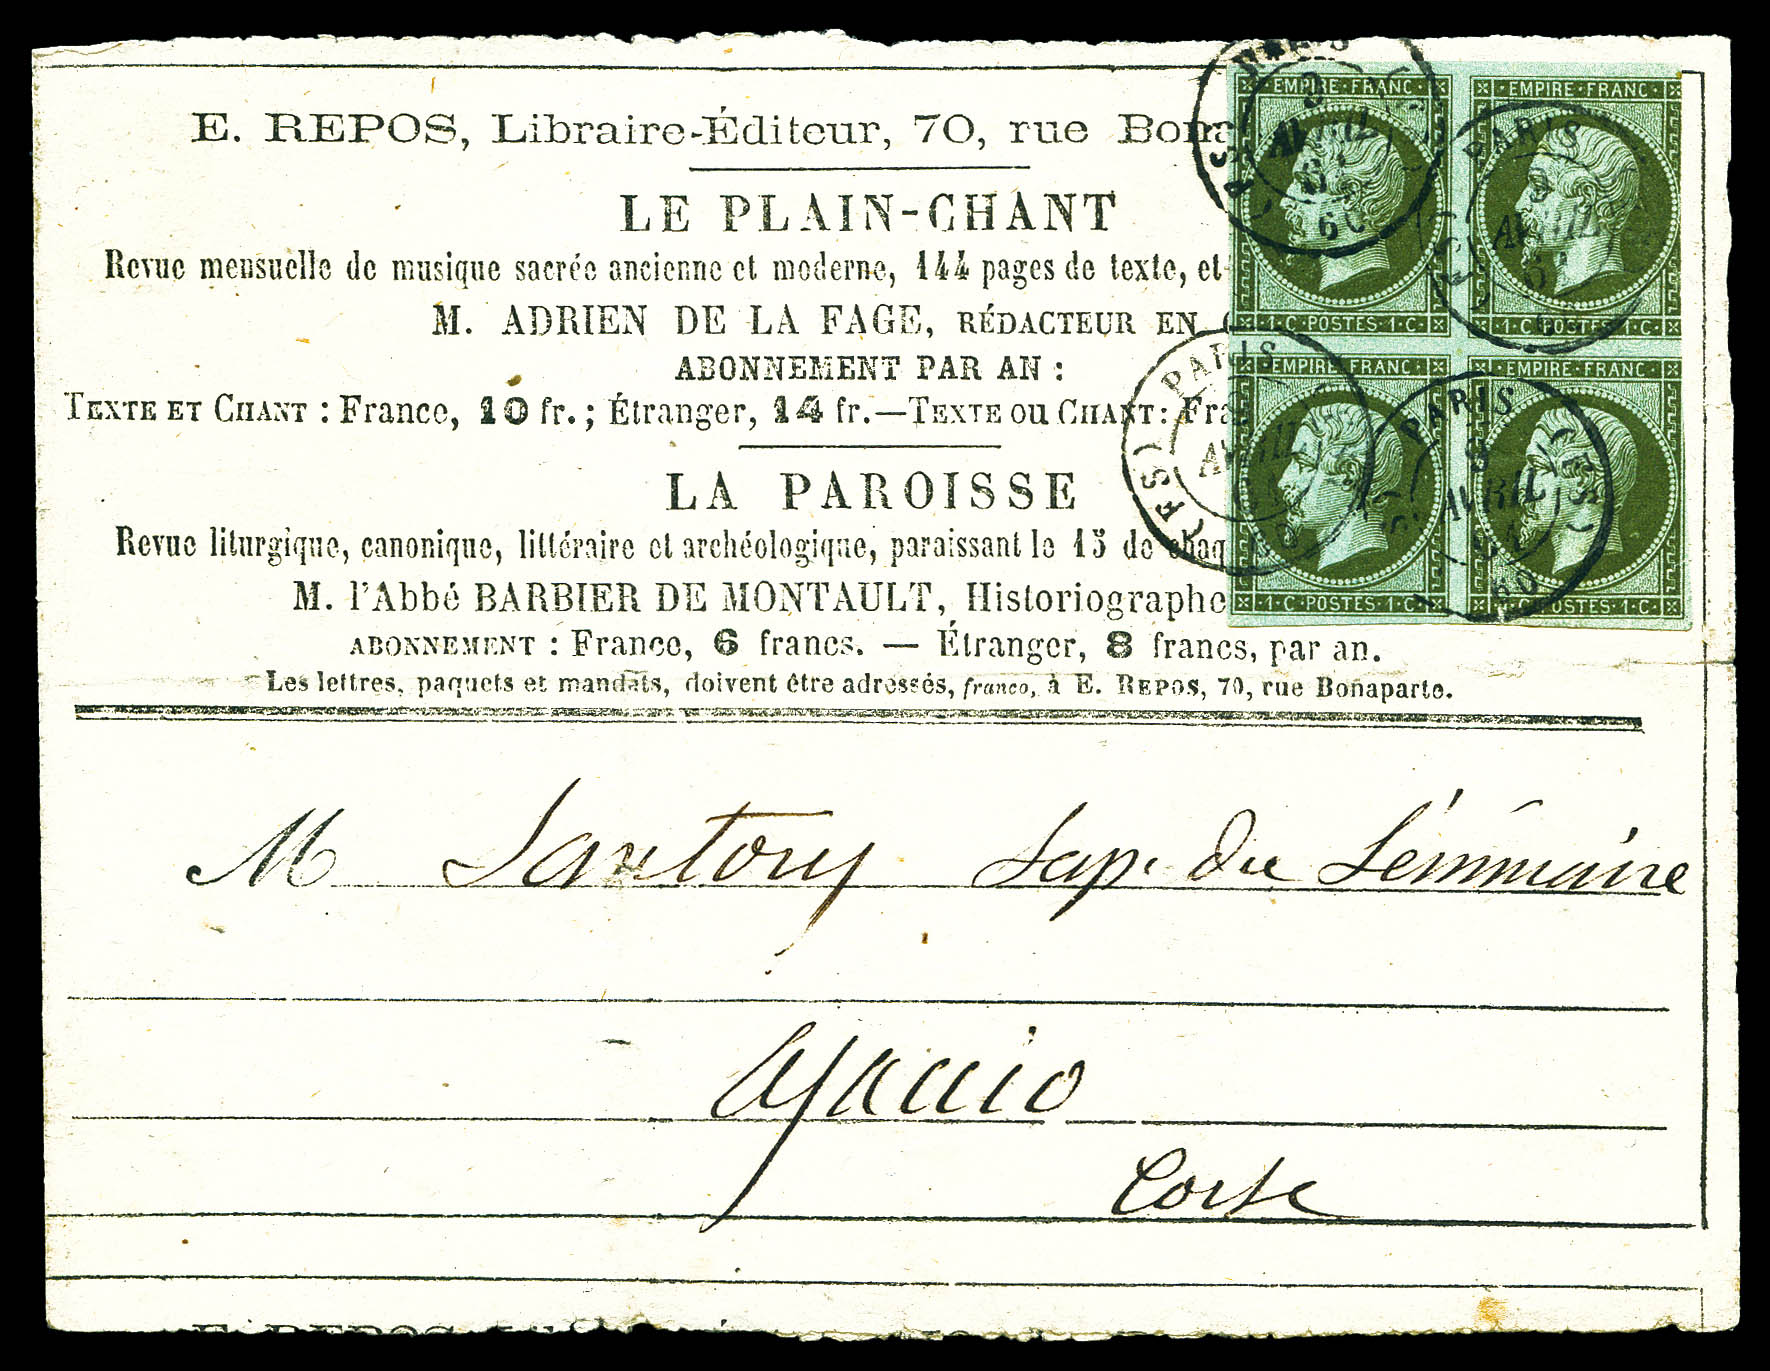 E. REPOS, Libraire-Éditeur, 70, rue Bona
LE PLAIN-CHANT
Revue mensuelle de musique sacrée ancienne et moderne, 144 pages de texte, et
M. ADRIEN DE LA FAGE, RÉDACTEUR EN
ABONNEMENT PAR AN :
TEXTE ET CHANT : France, 10 fr. ; Étranger, 14 fr.—TEXTE OU CHANT : Fra
LA PAROISSE
Revue liturgique, canonique, littéraire et archéologique, paraissant le 15 de chaq
M. l'Abbé BARBIER DE MONTAULT, Historiographe
ABONNEMENT : France, 6 francs. — Étranger, 8 francs, par an.
Les lettres, paquets et mandats, doivent être adressés, franco, à E. REPOS, 70, rue Bonaparte.
EMPIRE·FRANC·
EMPIRE·FRANC·
·1·C·POSTES·1·C·
·1·C·POSTES·1·C·
EMPIRE·FRANC·
EMPIRE·FRANC·
·1·C·POSTES·1·C·
·1·C·POSTES·1·C·
PARIS
9
AVRIL
61
60
PARIS
9
AVRIL
61
60
PARIS
AVRIL
(PSC)
60
PARIS
9
AVRIL
61
60
M Santory Sup. du Séminaire
Ajaccio
Corse
E. REPOS